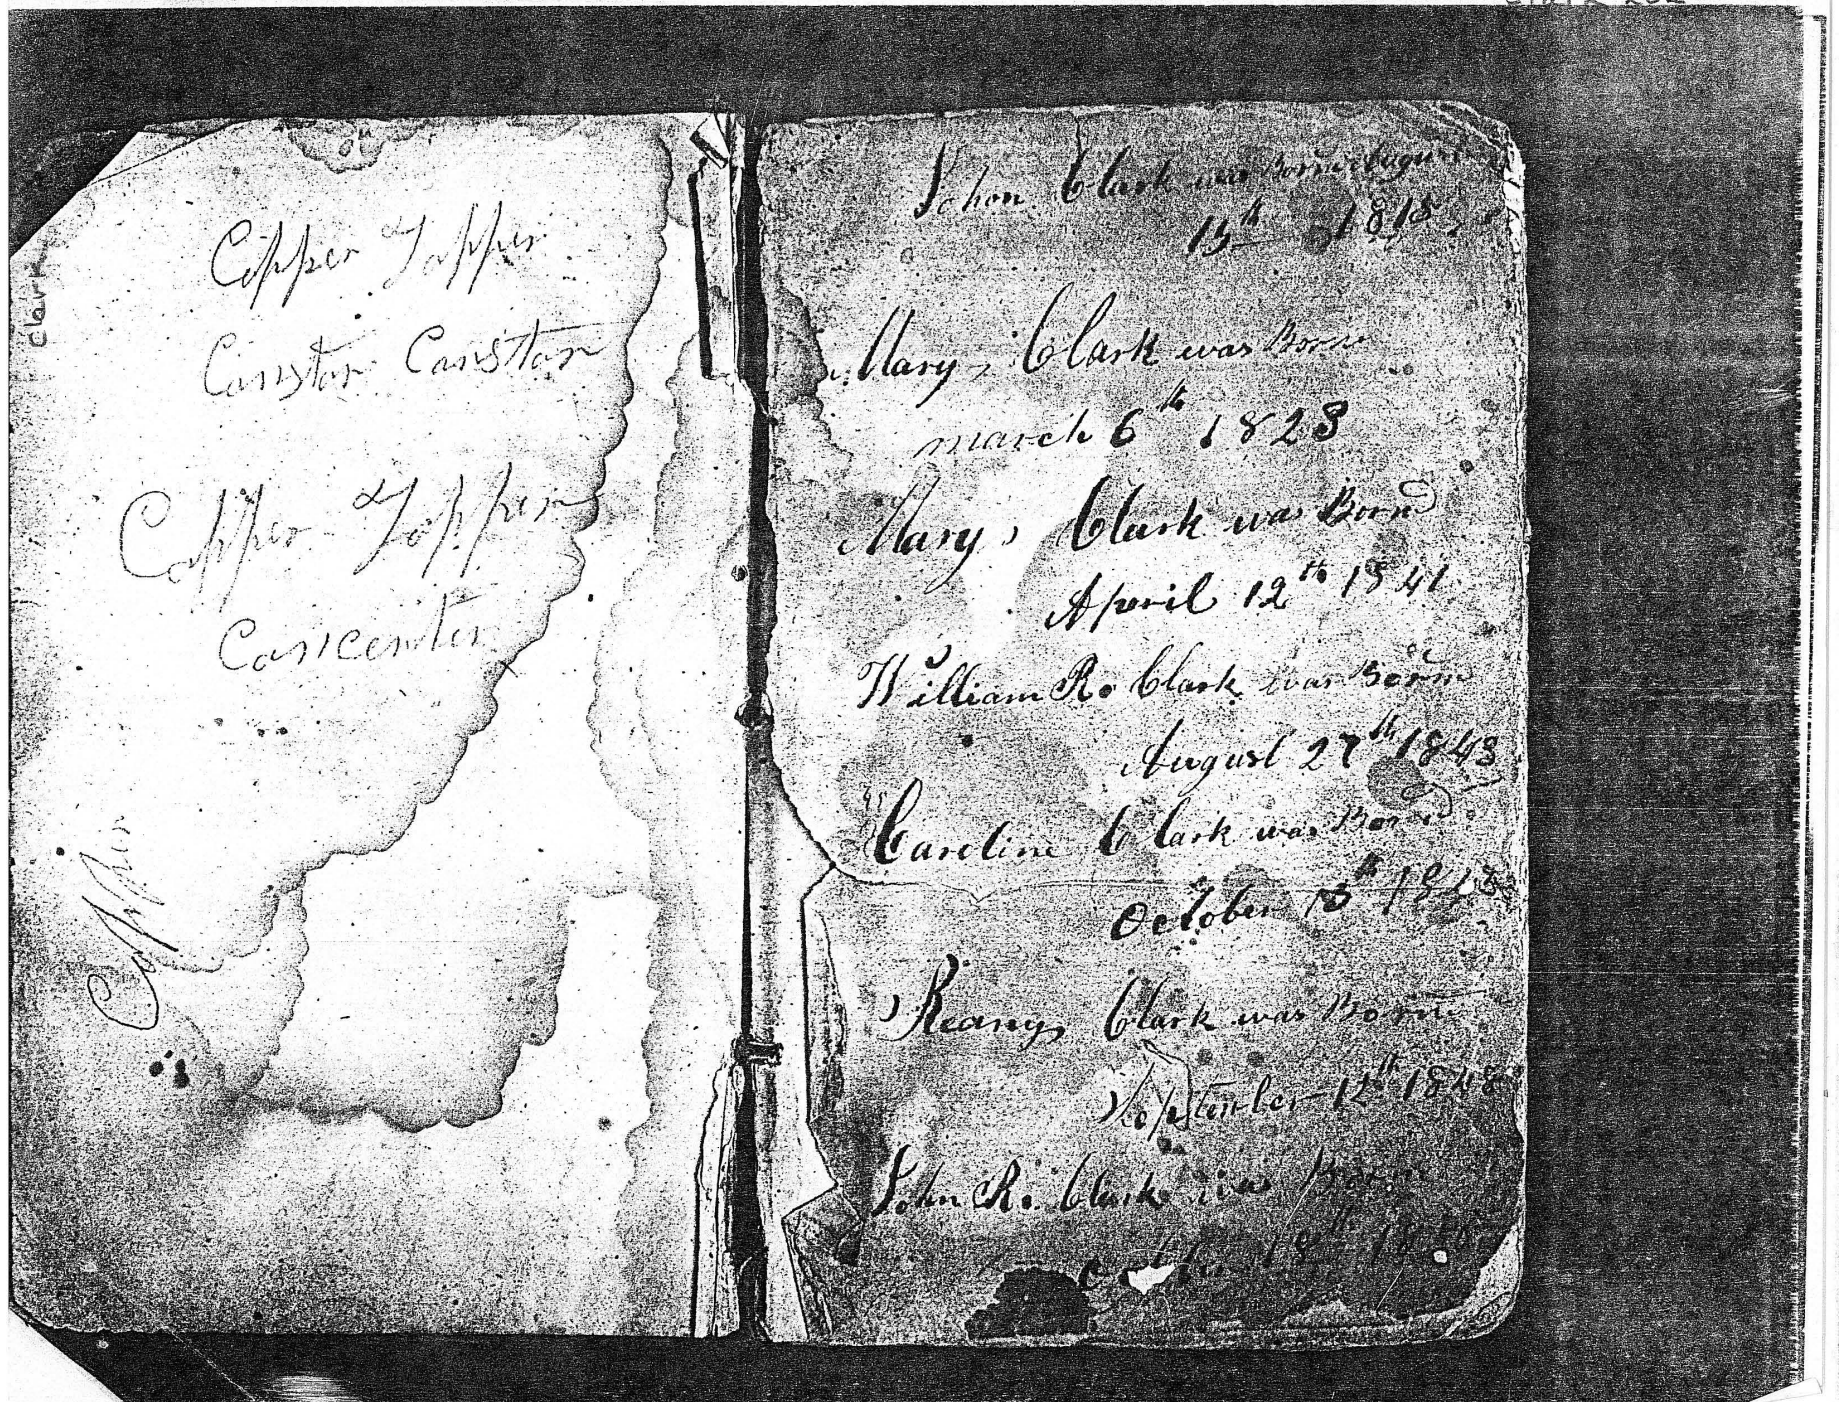 Clark
Copper Topper
Constor Constor
Copper Topper
Concenter
Copper
Johon Clark was Born August
13th 1818
Mary Clark was Born
march 6th 1823
Mary Clark was Born
April 12th 1841
William R. Clark was Born
August 27th 1843
Caroline Clark was Born
October 13th
Reany Clark was Born
September 12th 1848
John R. Clark was Born